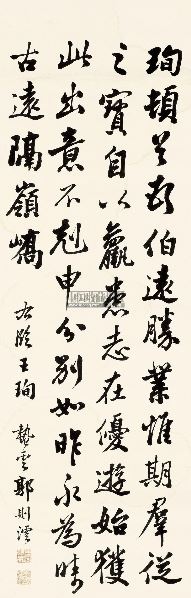 珣頓首頓伯遠勝業惟期群從
之寶自以羸患志在優遊始獲
此出意不剋申分別如昨永為疇
古遠隔嶺嶠
右臨王珣
蟄雲郭則澐